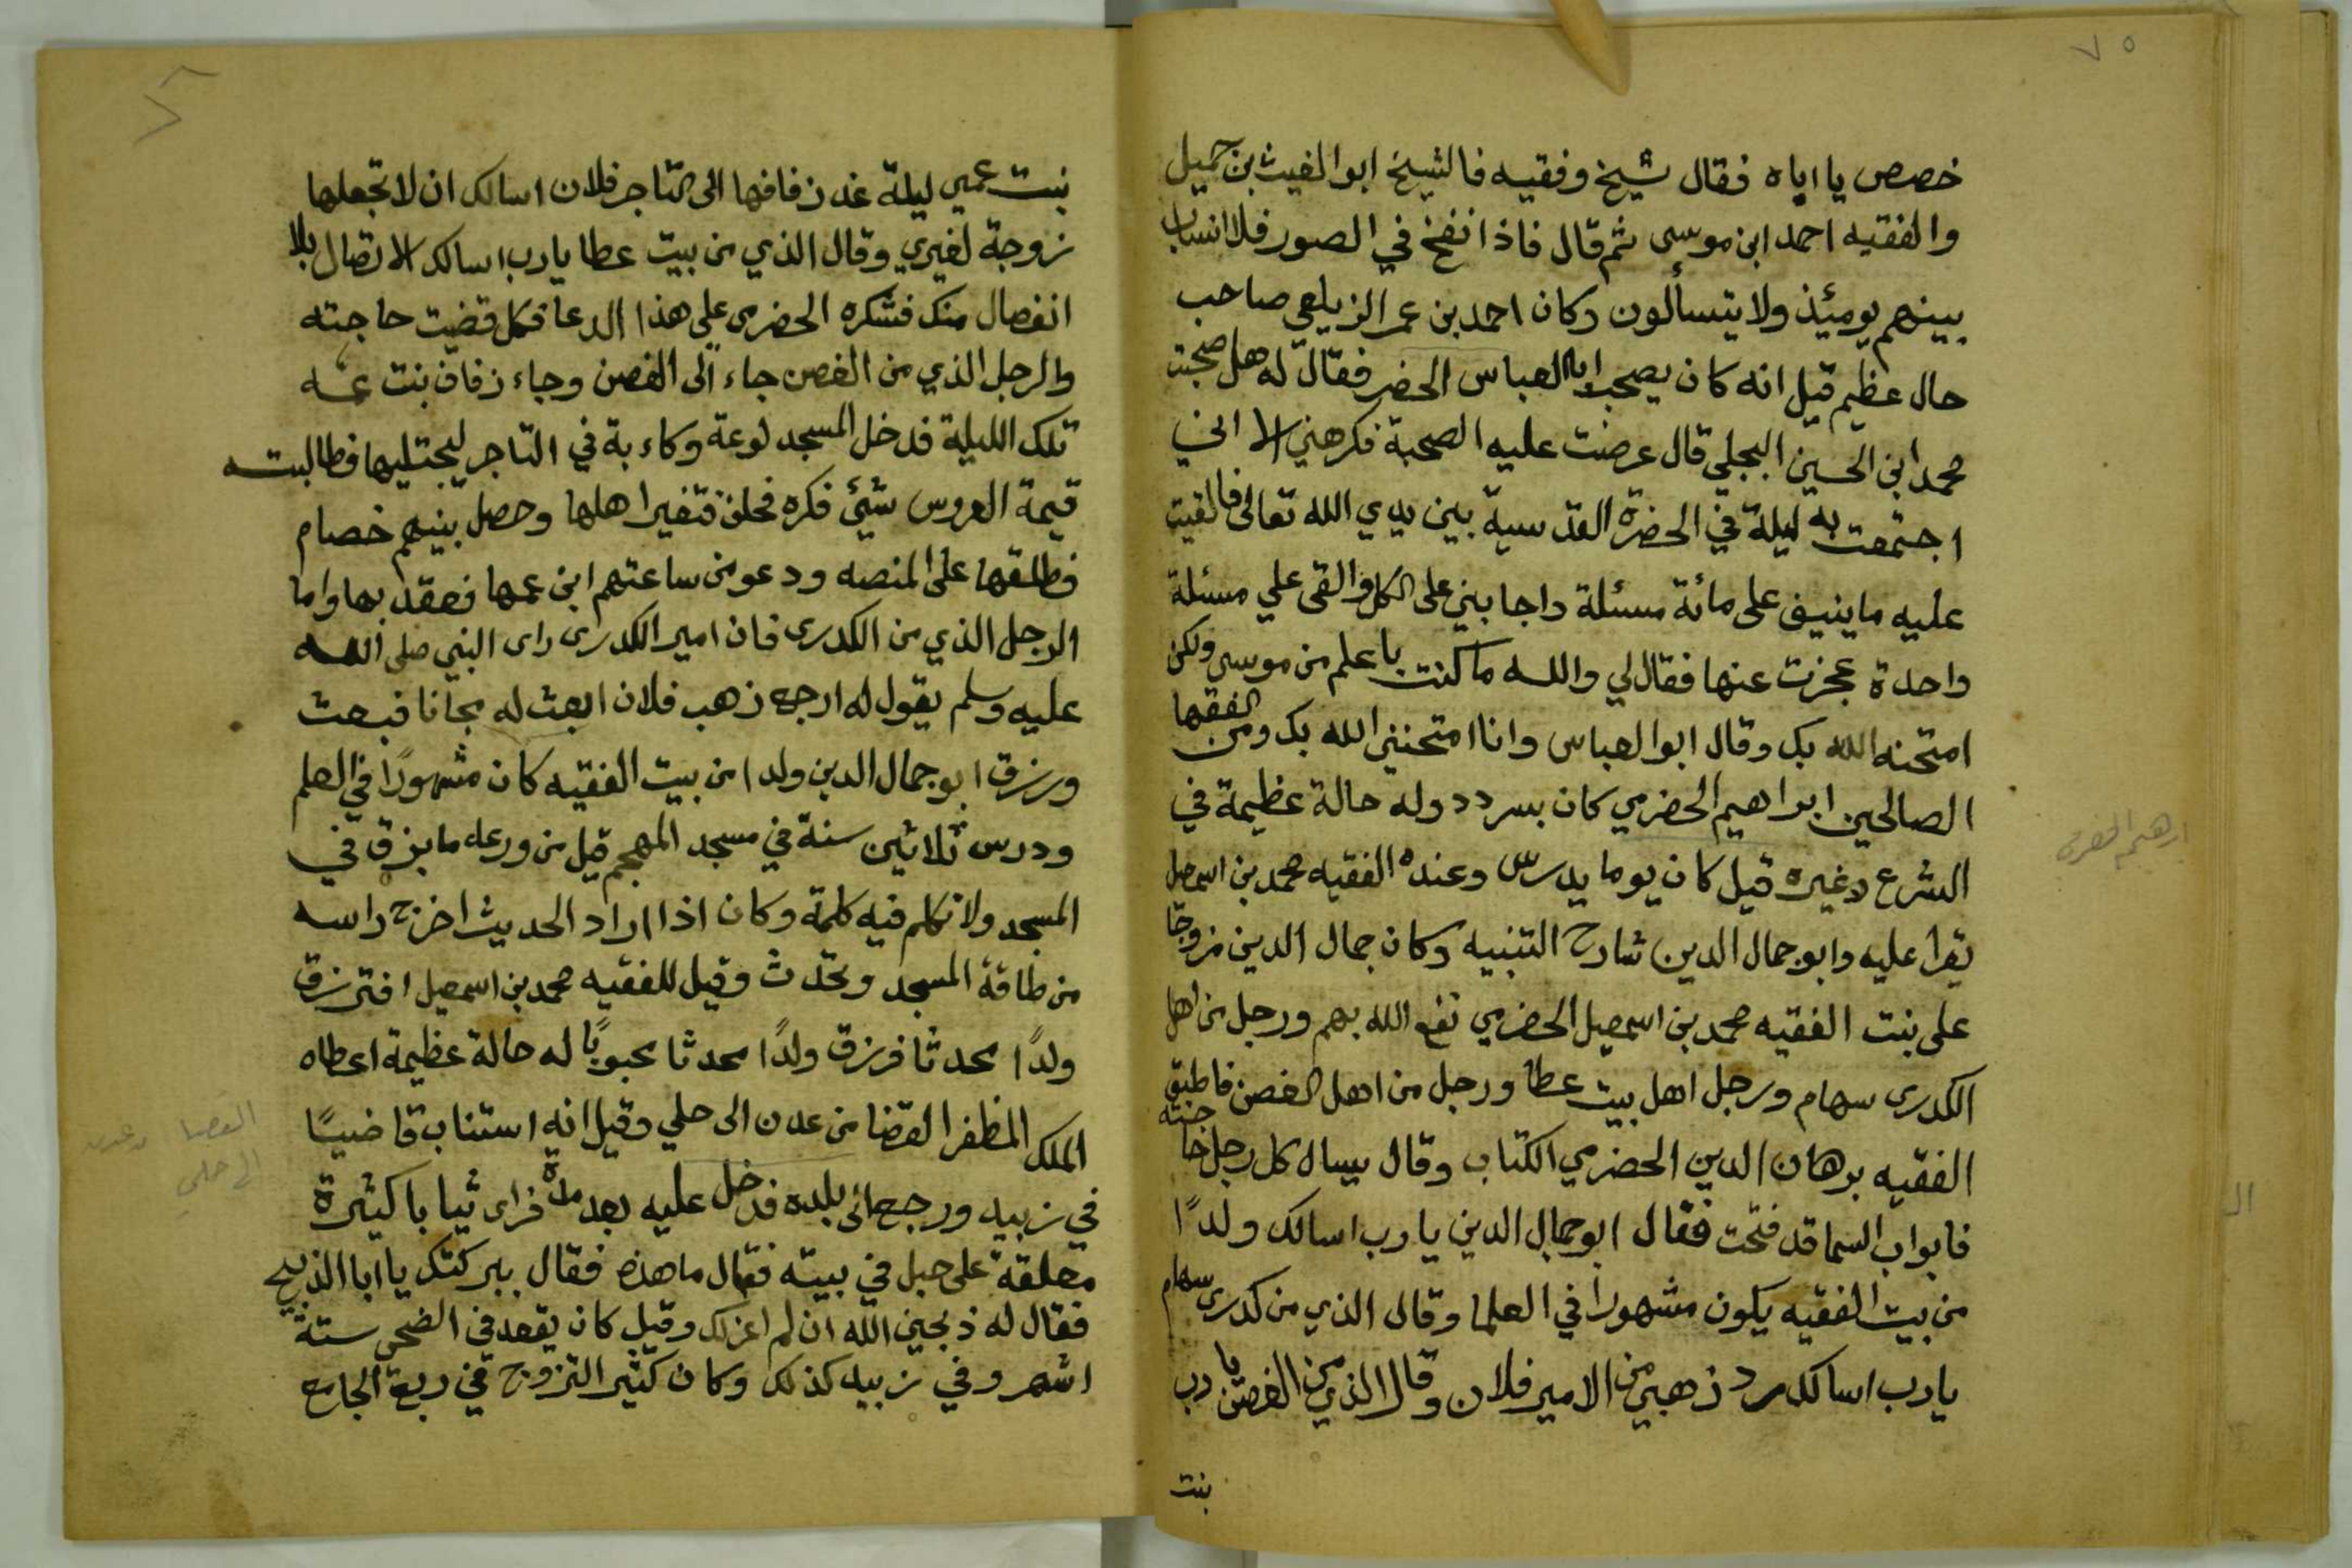 ٧٥
خصص يا اباه فقال شيخ وفقيه فالشيخ ابو الغيث بن جميل
والفقيه احمد ابن موسى ثم قال فاذا نفخ في الصور فلا انساب
بينهم يومئذ ولا يتسألون وكان احمد بن عمر الزيلعي صاحب
حال عظيم قيل انه كان يصحب ابا العباس الخضر فقال له هل صحبت
محمد ابن الحسين البجلي قال عرضت عليه الصحبة فكرهني الا اني
اجتمعت به ليلة في الحضرة القدسية بين يدي الله تعالى فالقيت
عليه ما ينيف على مائة مسئلة واجابني على الكل والقى علي مسئلة
واحدة عجزت عنها فقال لي والله ما كنت باعلم من موسى ولكن
امتحنه الله بك وقال ابو العباس وانا امتحنني الله بك ومن الفقها
الصالحين ابراهيم الحضرمي كان بسردد وله حالة عظيمة في
الشرع وغيره قيل كان يوما يدرس وعنده الفقيه محمد بن اسمعيل
يقرا عليه وابو جمال الدين شارح التنبيه وكان جمال الدين مزوجا
على بنت الفقيه محمد بن اسمعيل الحضرمي نفع الله بهم ورجل من اهل
الكدرى سهام ورجل اهل بيت عطا ورجل من اهل الغصن فاطبق
الفقيه برهان الدين الحضرمي الكتاب وقال يسال كل رجل حاجته
فابواب السما قد فتحت فقال ابو جمال الدين يا رب اسالك ولدًا
من بيت الفقيه يكون مشهورا في العلما وقال الذي من كدرى سهام
يا رب اسالك رد ذهبي من الامير فلان وقال الذي من الغصن يا رب
بنت
بنت عمي ليلة غد زفافها الى التاجر فلان اسالك ان لا تجعلها
زوجة لغيري وقال الذي من بيت عطا يا رب اسالك الاتصال بلا
انفصال منك فشكره الحضرمى على هذا الدعا فكل قضيت حاجته
والرجل الذي من الغصن جاء الى الغصن وجاء زفاف بنت عمه
تلك الليلة فدخل المسجد لوعة وكاءبة في التاجر ليجتليها فطالبته
قيمة العروس شيئ فكره فحلف فتغير اهلها وحصل بينهم خصام
فطلقها على المنصه ودعو من ساعتهم ابن عمها فعقد بها واما
الرجل الذي من الكدرى فان امير الكدرى راى النبي صلى الله
عليه وسلم يقول له ارجع ذهب فلان ابعث له مجانا فبعث
ورزق ابو جمال الدين ولدا من بيت الفقيه كان مشهورًا في العلم
ودرس ثلاثين سنة في مسجد المهجم قيل من ورعه ما بزق في
المسجد ولا تكلم فيه كلمة وكان اذا اراد الحديث اخرج راسه
من طاقة المسجد وتحدث وقيل للفقيه محمد بن اسمعيل افترزق
ولدًا محدثا فرزق ولدًا محدثا محبوبًا له حالة عظيمة اعطاه
الملك المظفر القضا من عدن الى حلي وقيل انه استناب قاضيًا
في زبيد ورجع الى بلده فدخل عليه بعد مدة فراى ثيابا كثيرة
معلقة على حبل في بيته فقال ما هذه فقال ببركتك يا ابا الذبيح
فقال له ذبحني الله ان لم اعزلك وقيل كان يقعد في الضحى ستة
اشهر وفي زبيد كذلك وكان كثير التزوج في ربعة الجامع
القضا
الى حلي